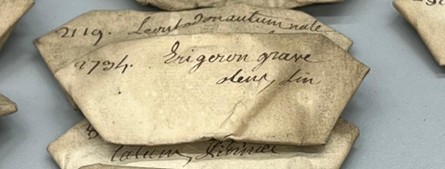 2119. Leontodon autumnale
2734. Erigeron grave
olens, Lin